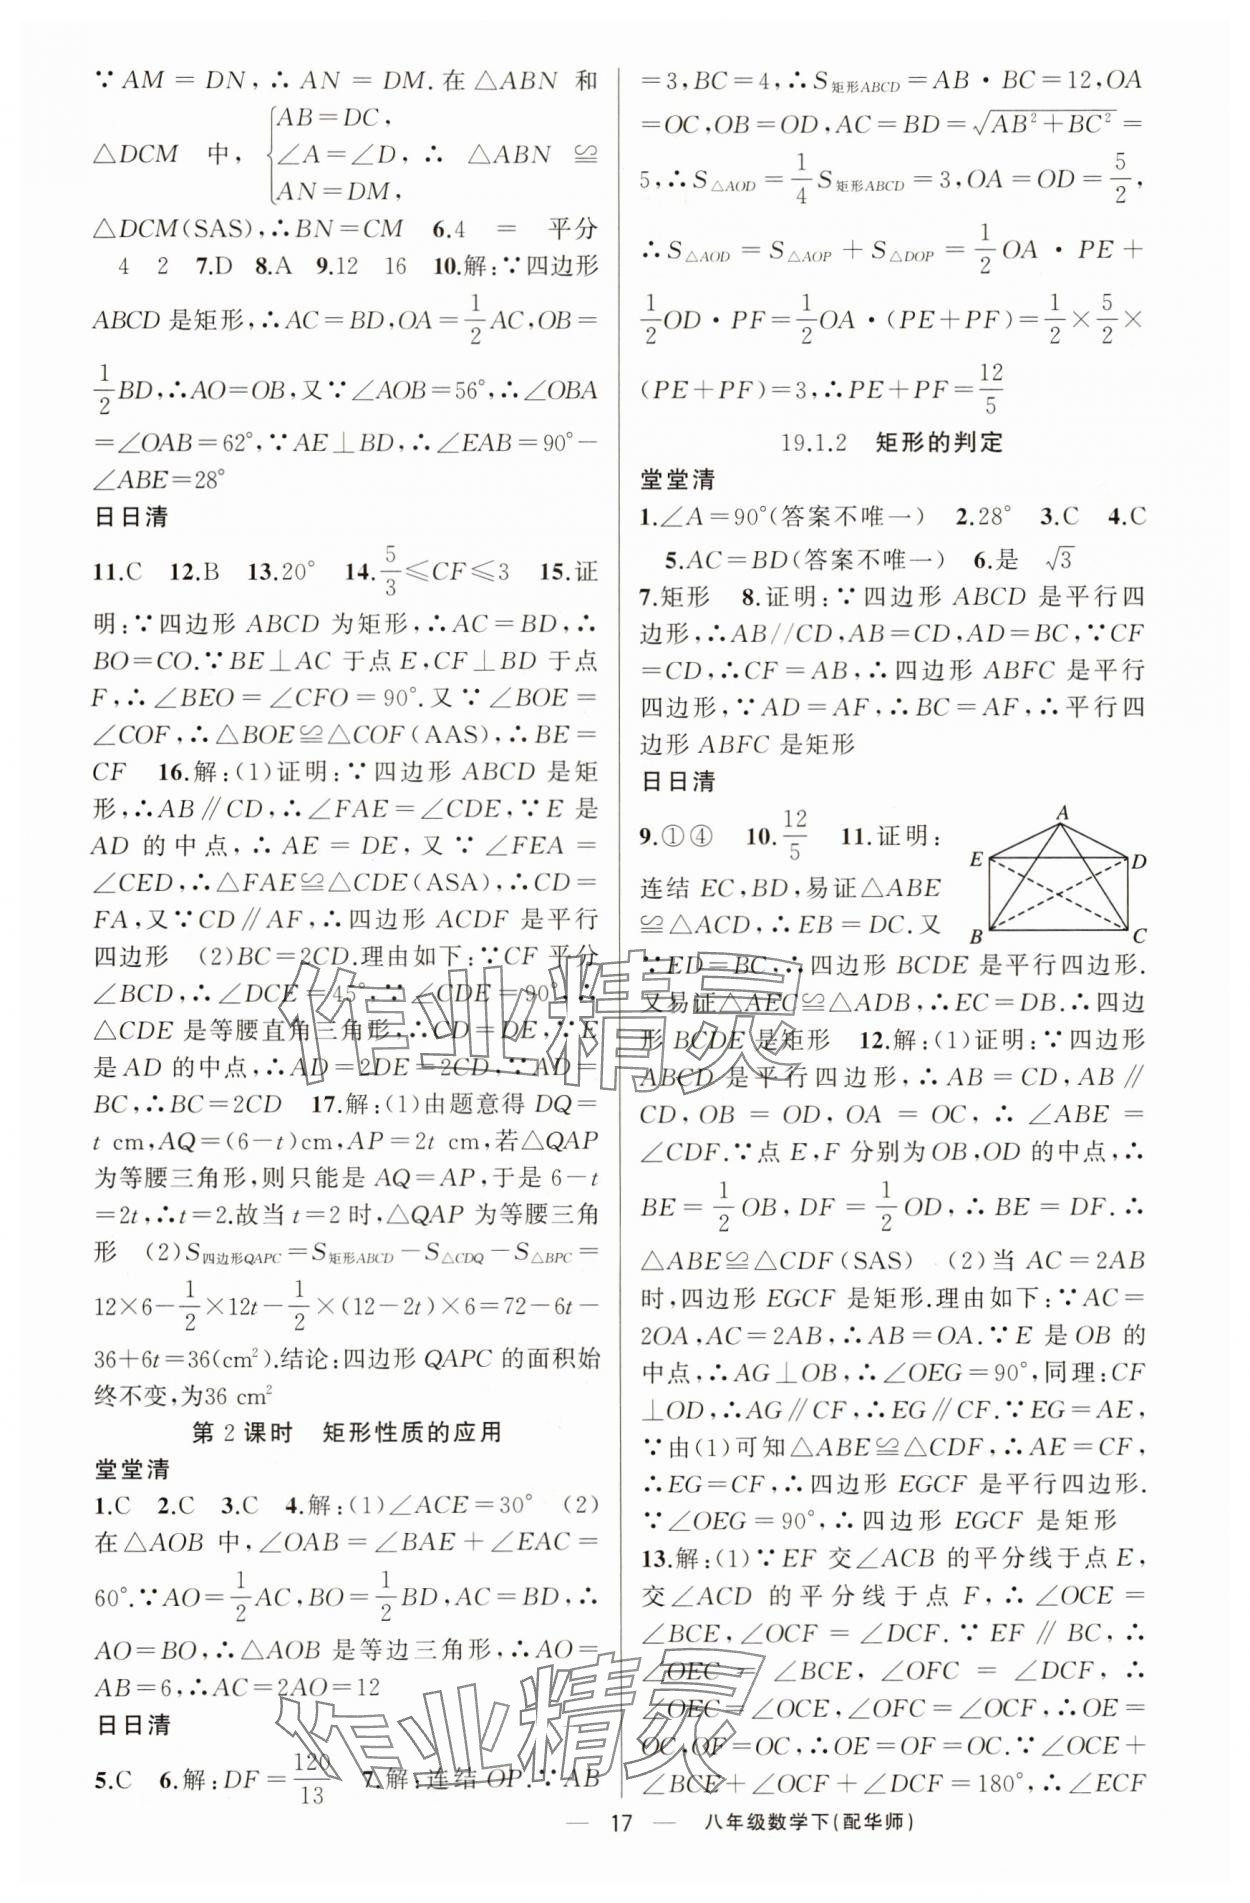 ∵AM=DN,∴AN=DM.在△ABN 和
△DCM 中,{AB=DC,∠A=∠D,AN=DM,∴△ABN≌
△DCM(SAS),∴BN=CM 6.4 = 平分
4 2 7.D 8.A 9.12 16 10.解:∵四边形
ABCD 是矩形,∴AC=BD,OA=1/2AC,OB=
1/2BD,∴AO=OB,又∵∠AOB=56°,∴∠OBA
=∠OAB=62°,∵AE⊥BD,∴∠EAB=90°-
∠ABE=28°
日日清
11.C 12.B 13.20° 14.5/3≤CF≤3 15.证
明:∵四边形 ABCD 为矩形,∴AC=BD,∴
BO=CO.∵BE⊥AC 于点 E,CF⊥BD 于点
F,∴∠BEO=∠CFO=90°.又∵∠BOE=
∠COF,∴△BOE≌△COF(AAS),∴BE=
CF 16.解:(1)证明:∵四边形 ABCD 是矩
形,∴AB∥CD,∴∠FAE=∠CDE,∵E 是
AD 的中点,∴AE=DE,又∵∠FEA=
∠CED,∴△FAE≌△CDE(ASA),∴CD=
FA,又∵CD∥AF,∴四边形 ACDF 是平行
四边形 (2)BC=2CD.理由如下:∵CF 平分
∠BCD,∴∠DCE=45°,∵∠CDE=90°,∴
△CDE 是等腰直角三角形,∴CD=DE,∵E
是 AD 的中点,∴AD=2DE=2CD,∵AD=
BC,∴BC=2CD 17.解:(1)由题意得 DQ=
t cm,AQ=(6-t)cm,AP=2t cm,若△QAP
为等腰三角形,则只能是 AQ=AP,于是 6-t
=2t,∴t=2.故当 t=2 时,△QAP 为等腰三角
形 (2)S四边形QAPC=S矩形ABCD-S△CDQ-S△BPC=
12×6-1/2×12t-1/2×(12-2t)×6=72-6t-
36+6t=36(cm²).结论:四边形 QAPC 的面积始
终不变,为36 cm²
第 2 课时 矩形性质的应用
堂堂清
1.C 2.C 3.C 4.解:(1)∠ACE=30° (2)
在△AOB 中,∠OAB=∠BAE+∠EAC=
60°.∵AO=1/2AC,BO=1/2BD,AC=BD,∴
AO=BO,∴△AOB 是等边三角形,∴AO=
AB=6,∴AC=2AO=12
日日清
5.C 6.解:DF=120/13 7.解:连结 OP.∵AB
=3,BC=4,∴S矩形ABCD=AB·BC=12,OA
=OC,OB=OD,AC=BD=√(AB²+BC²)=
5,∴S△AOD=1/4S矩形ABCD=3,OA=OD=5/2,
∴S△AOD=S△AOP+S△DOP=1/2OA·PE+
1/2OD·PF=1/2OA·(PE+PF)=1/2×5/2×
(PE+PF)=3,∴PE+PF=12/5
19.1.2 矩形的判定
堂堂清
1.∠A=90°(答案不唯一) 2.28° 3.C 4.C
5.AC=BD(答案不唯一) 6.是 √3
7.矩形 8.证明:∵四边形 ABCD 是平行四
边形,∴AB//CD,AB=CD,AD=BC,∵CF
=CD,∴CF=AB,∴四边形 ABFC 是平行
四边形,∵AD=AF,∴BC=AF,∴平行四
边形 ABFC 是矩形
日日清
9.①④ 10.12/5 11.证明:
连结 EC,BD,易证△ABE
≌△ACD,∴EB=DC.又
A
E
D
B
C
∵ED=BC,∴四边形 BCDE 是平行四边形.
又易证△AEC≌△ADB,∴EC=DB.∴四边
形 BCDE 是矩形 12.解:(1)证明:∵四边形
ABCD 是平行四边形,∴AB=CD,AB∥
CD,OB=OD,OA=OC,∴∠ABE=
∠CDF.∵点 E,F 分别为 OB,OD 的中点,∴
BE=1/2OB,DF=1/2OD,∴BE=DF.∴
△ABE≌△CDF(SAS) (2)当 AC=2AB
时,四边形 EGCF 是矩形.理由如下:∵AC=
2OA,AC=2AB,∴AB=OA.∵E 是 OB 的
中点,∴AG⊥OB,∴∠OEG=90°,同理:CF
⊥OD,∴AG∥CF,∴EG∥CF.∵EG=AE,
∵由(1)可知△ABE≌△CDF,∴AE=CF,
∴EG=CF,∴四边形 EGCF 是平行四边形.
∵∠OEG=90°,∴四边形 EGCF 是矩形
13.解:(1)∵EF 交∠ACB 的平分线于点 E,
交∠ACD 的平分线于点 F,∴∠OCE=
∠BCE,∠OCF=∠DCF.∵EF∥BC,∴
∠OEC=∠BCE,∠OFC=∠DCF,∴
∠OEC=∠OCE,∠OFC=∠OCF,∴OE=
OC,OF=OC,∴OE=OF=OC.∵∠OCE+
∠BCE+∠OCF+∠DCF=180°,∴∠ECF
— 17 — 八年级数学下(配华师)
作业精灵
作业精灵